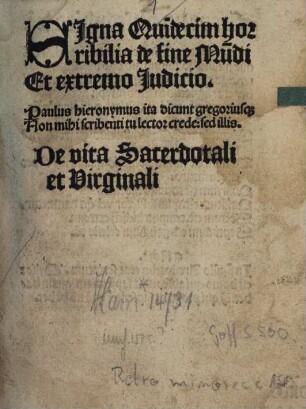 SIgna Quīdecim hor
ribilia de fine Mūdi
Et extremo Judicio.
Paulus hieronymus ita dicunt gregoriusqꝫ
Non mihi scribenti tu lector crede: sed illis.
De vita Sacerdotali
et Virginali
Hain * 14731
Goff S 500
Retro